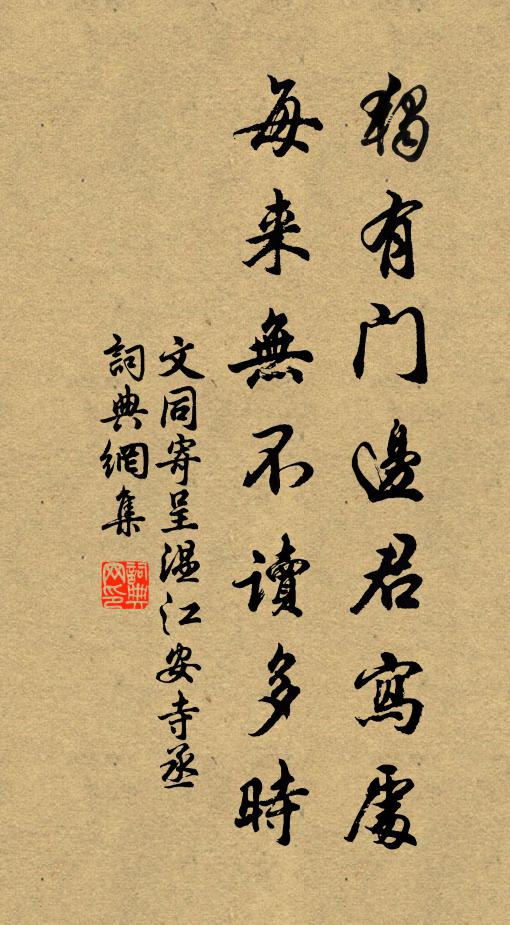 獨有門邊君寫處
每来無不讀多時
文同寄呈溫江安寺丞
詞典網集
詞典网印